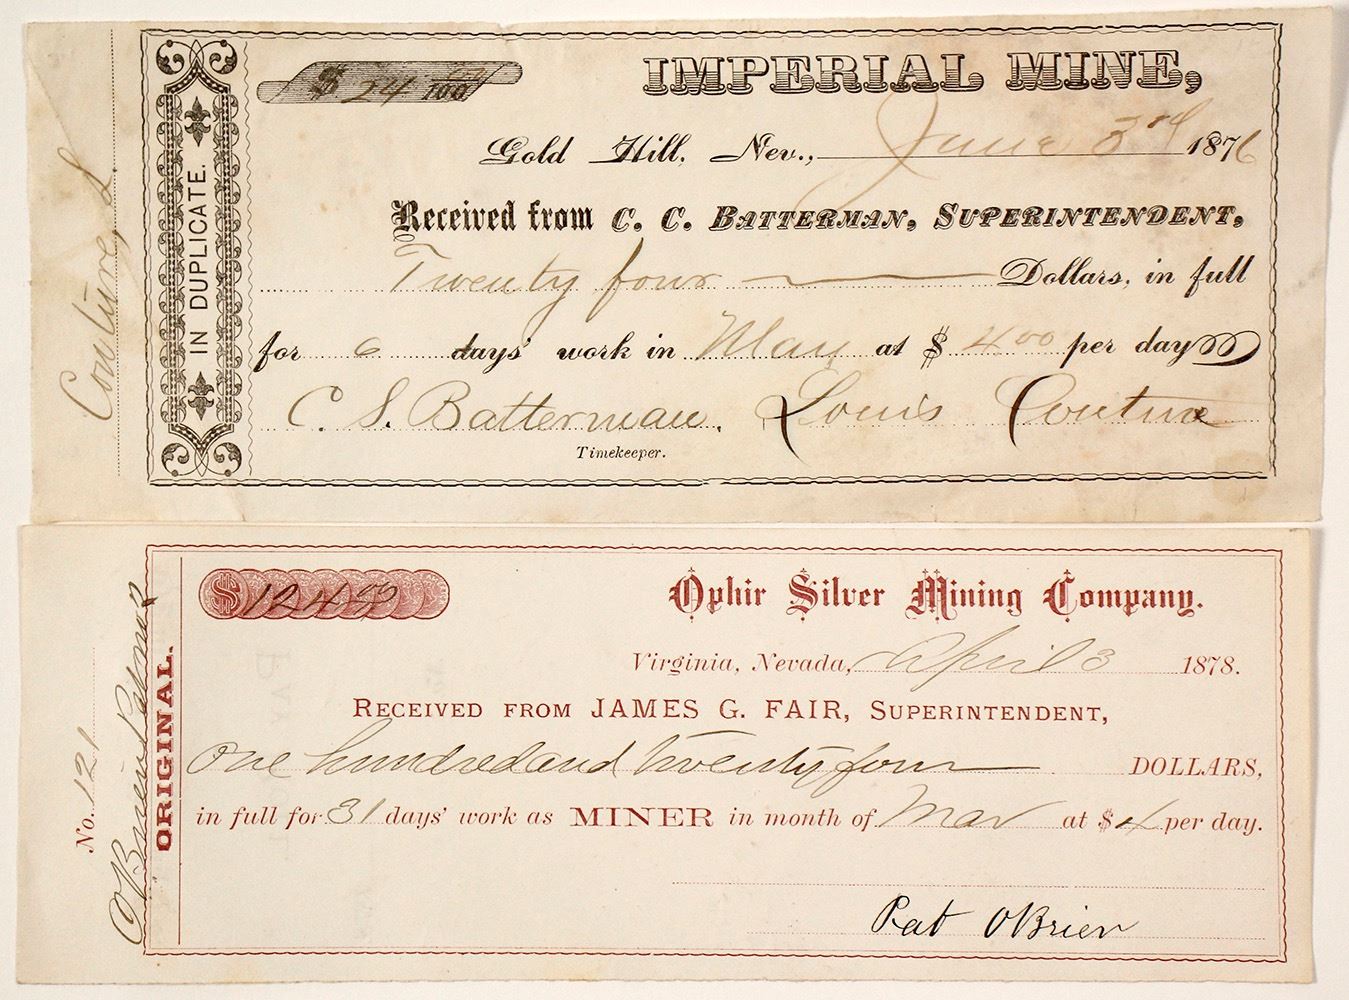 IMPERIAL MINE,
$ 24 00/100
Gold Hill, Nev., June 3rd 1876
Received from C. C. BATTERMAN, SUPERINTENDENT,
Twenty four Dollars, in full
for 6 days' work in May at $ 4.00 per day
C. S. Batterman. Louis Couture
Timekeeper.
IN DUPLICATE.
Couture, L.
Ophir Silver Mining Company.
$124
Virginia, Nevada, April 3 1878.
RECEIVED FROM JAMES G. FAIR, SUPERINTENDENT,
One hundred and twenty four DOLLARS,
in full for 31 days' work as MINER in month of Mar at $4 per day.
Pat OBrien
ORIGINAL.
No. 121
OBrien